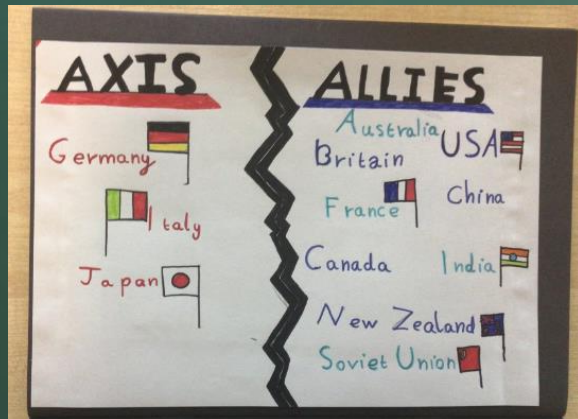 AXIS
Germany
Italy
Japan
ALLIES
Australia
USA
Britain
France
China
Canada
India
New Zealand
Soviet Union